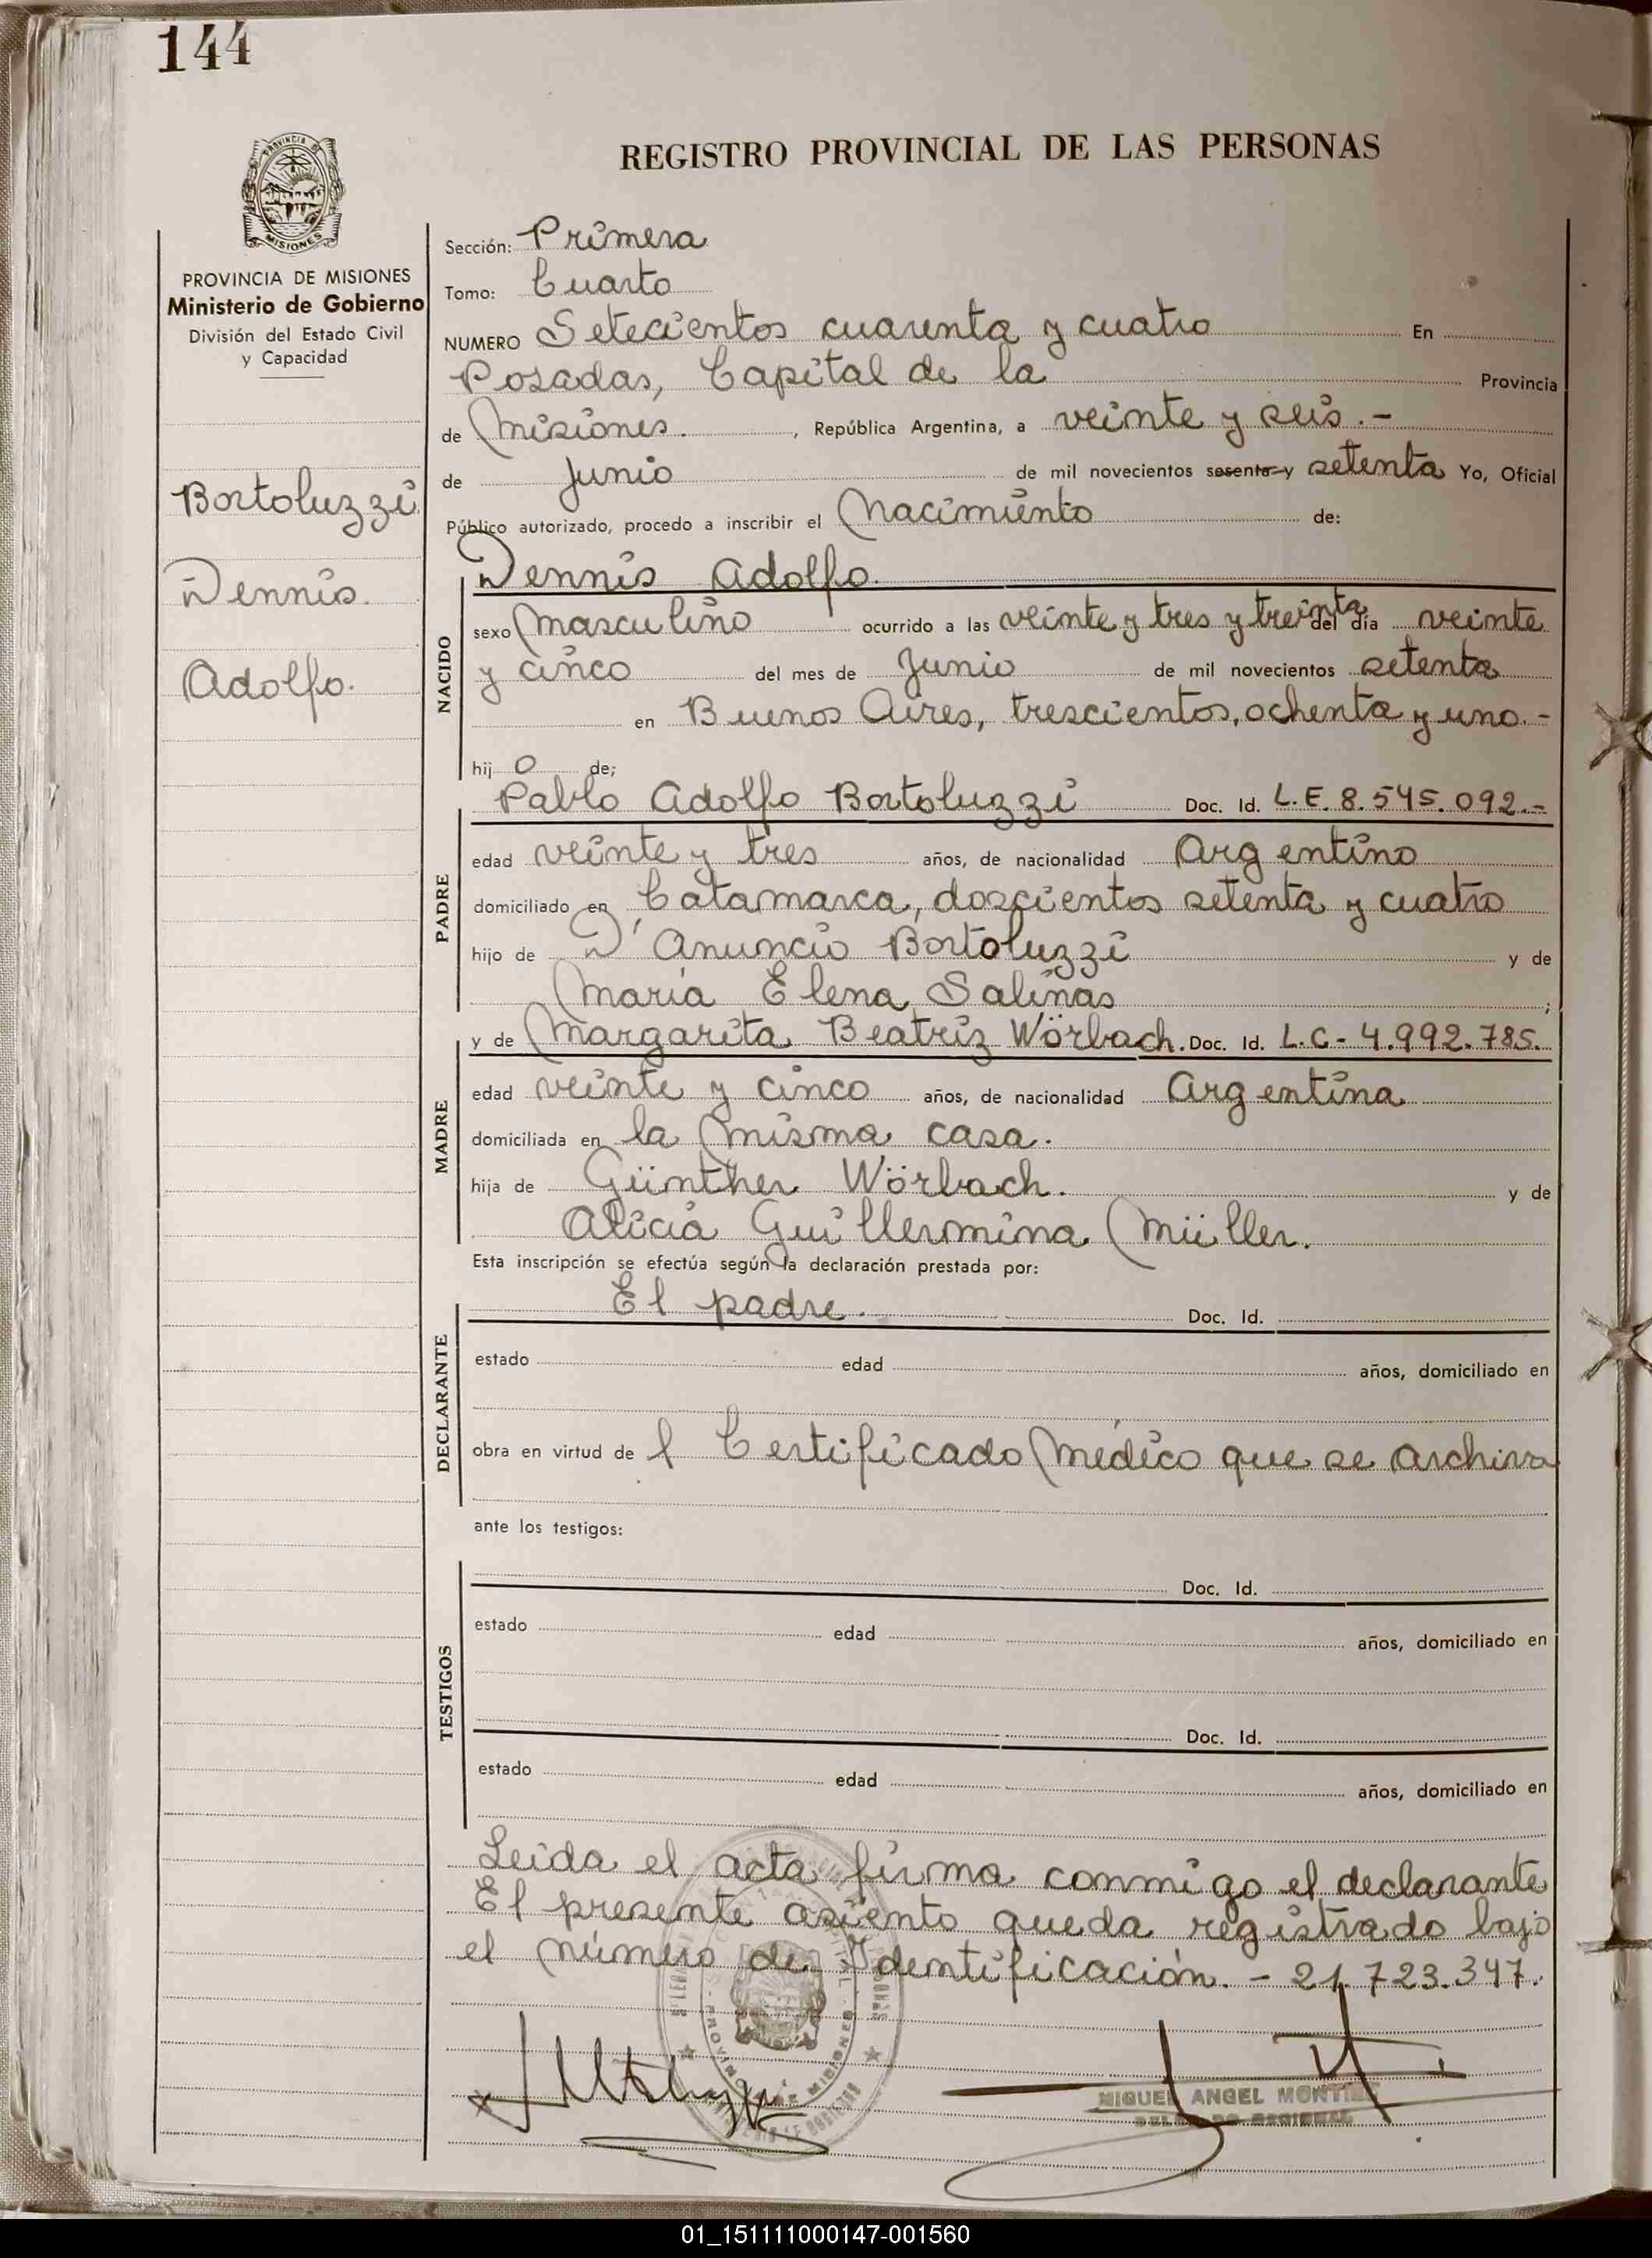 144
REGISTRO PROVINCIAL DE LAS PERSONAS
PROVINCIA DE MISIONES
PROVINCIA DE MISIONES
Ministerio de Gobierno
División del Estado Civil
y Capacidad
Bortoluzzi
Dennis
Adolfo.
Sección: Primera
Tomo: Cuarto
NUMERO Setecientos cuarenta y cuatro En
Posadas, Capital de la Provincia
de Misiones. , República Argentina, a veinte y seis.-
de Junio de mil novecientos sesenta y setenta Yo, Oficial
Público autorizado, procedo a inscribir el Nacimiento de:
Dennis Adolfo.
NACIDO
sexo Masculino ocurrido a las veinte y tres y treinta del día veinte
y cinco del mes de Junio de mil novecientos setenta
en Buenos Aires, trescientos, ochenta y uno.-
hij o de;
Pablo Adolfo Bortoluzzi Doc. Id. L.E. 8.545.092.-
PADRE
edad veinte y tres años, de nacionalidad Argentino
domiciliado en Catamarca, doscientos setenta y cuatro
hijo de D'Anuncio Bortoluzzi y de
María Elena Salinas ;
y de Margarita Beatriz Wörbach. Doc. Id. L.C- 4.992.785.
MADRE
edad veinte y cinco años, de nacionalidad Argentina
domiciliada en la misma casa.
hija de Günther Wörbach. y de
Alicia Guillermina Müller.
Esta inscripción se efectúa según la declaración prestada por:
El padre. Doc. Id.
DECLARANTE
estado edad años, domiciliado en
obra en virtud de l Certificado Médico que se archiva
ante los testigos:
TESTIGOS
Doc. Id.
estado edad años, domiciliado en
Doc. Id.
estado edad años, domiciliado en
Leida el acta firma conmigo el declarante
El presente asiento queda registrado bajo
el número de Identificación. - 21.723.347.
MIGUEL ANGEL MONTIEL
01_151111000147-001560